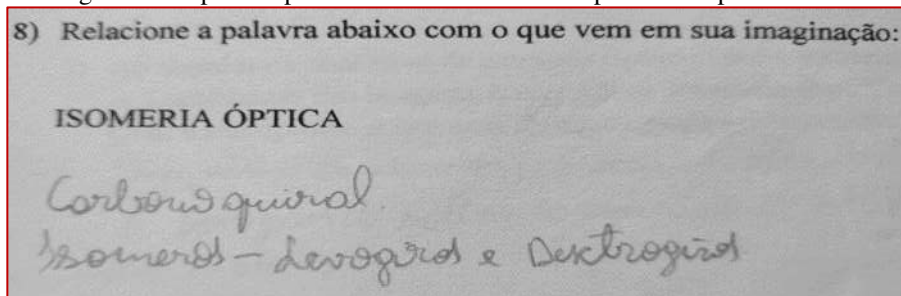 8) Relacione a palavra abaixo com o que vem em sua imaginação:
ISOMERIA ÓPTICA
Carbono quiral.
Isomeros - Levogiros e Dextrogiros